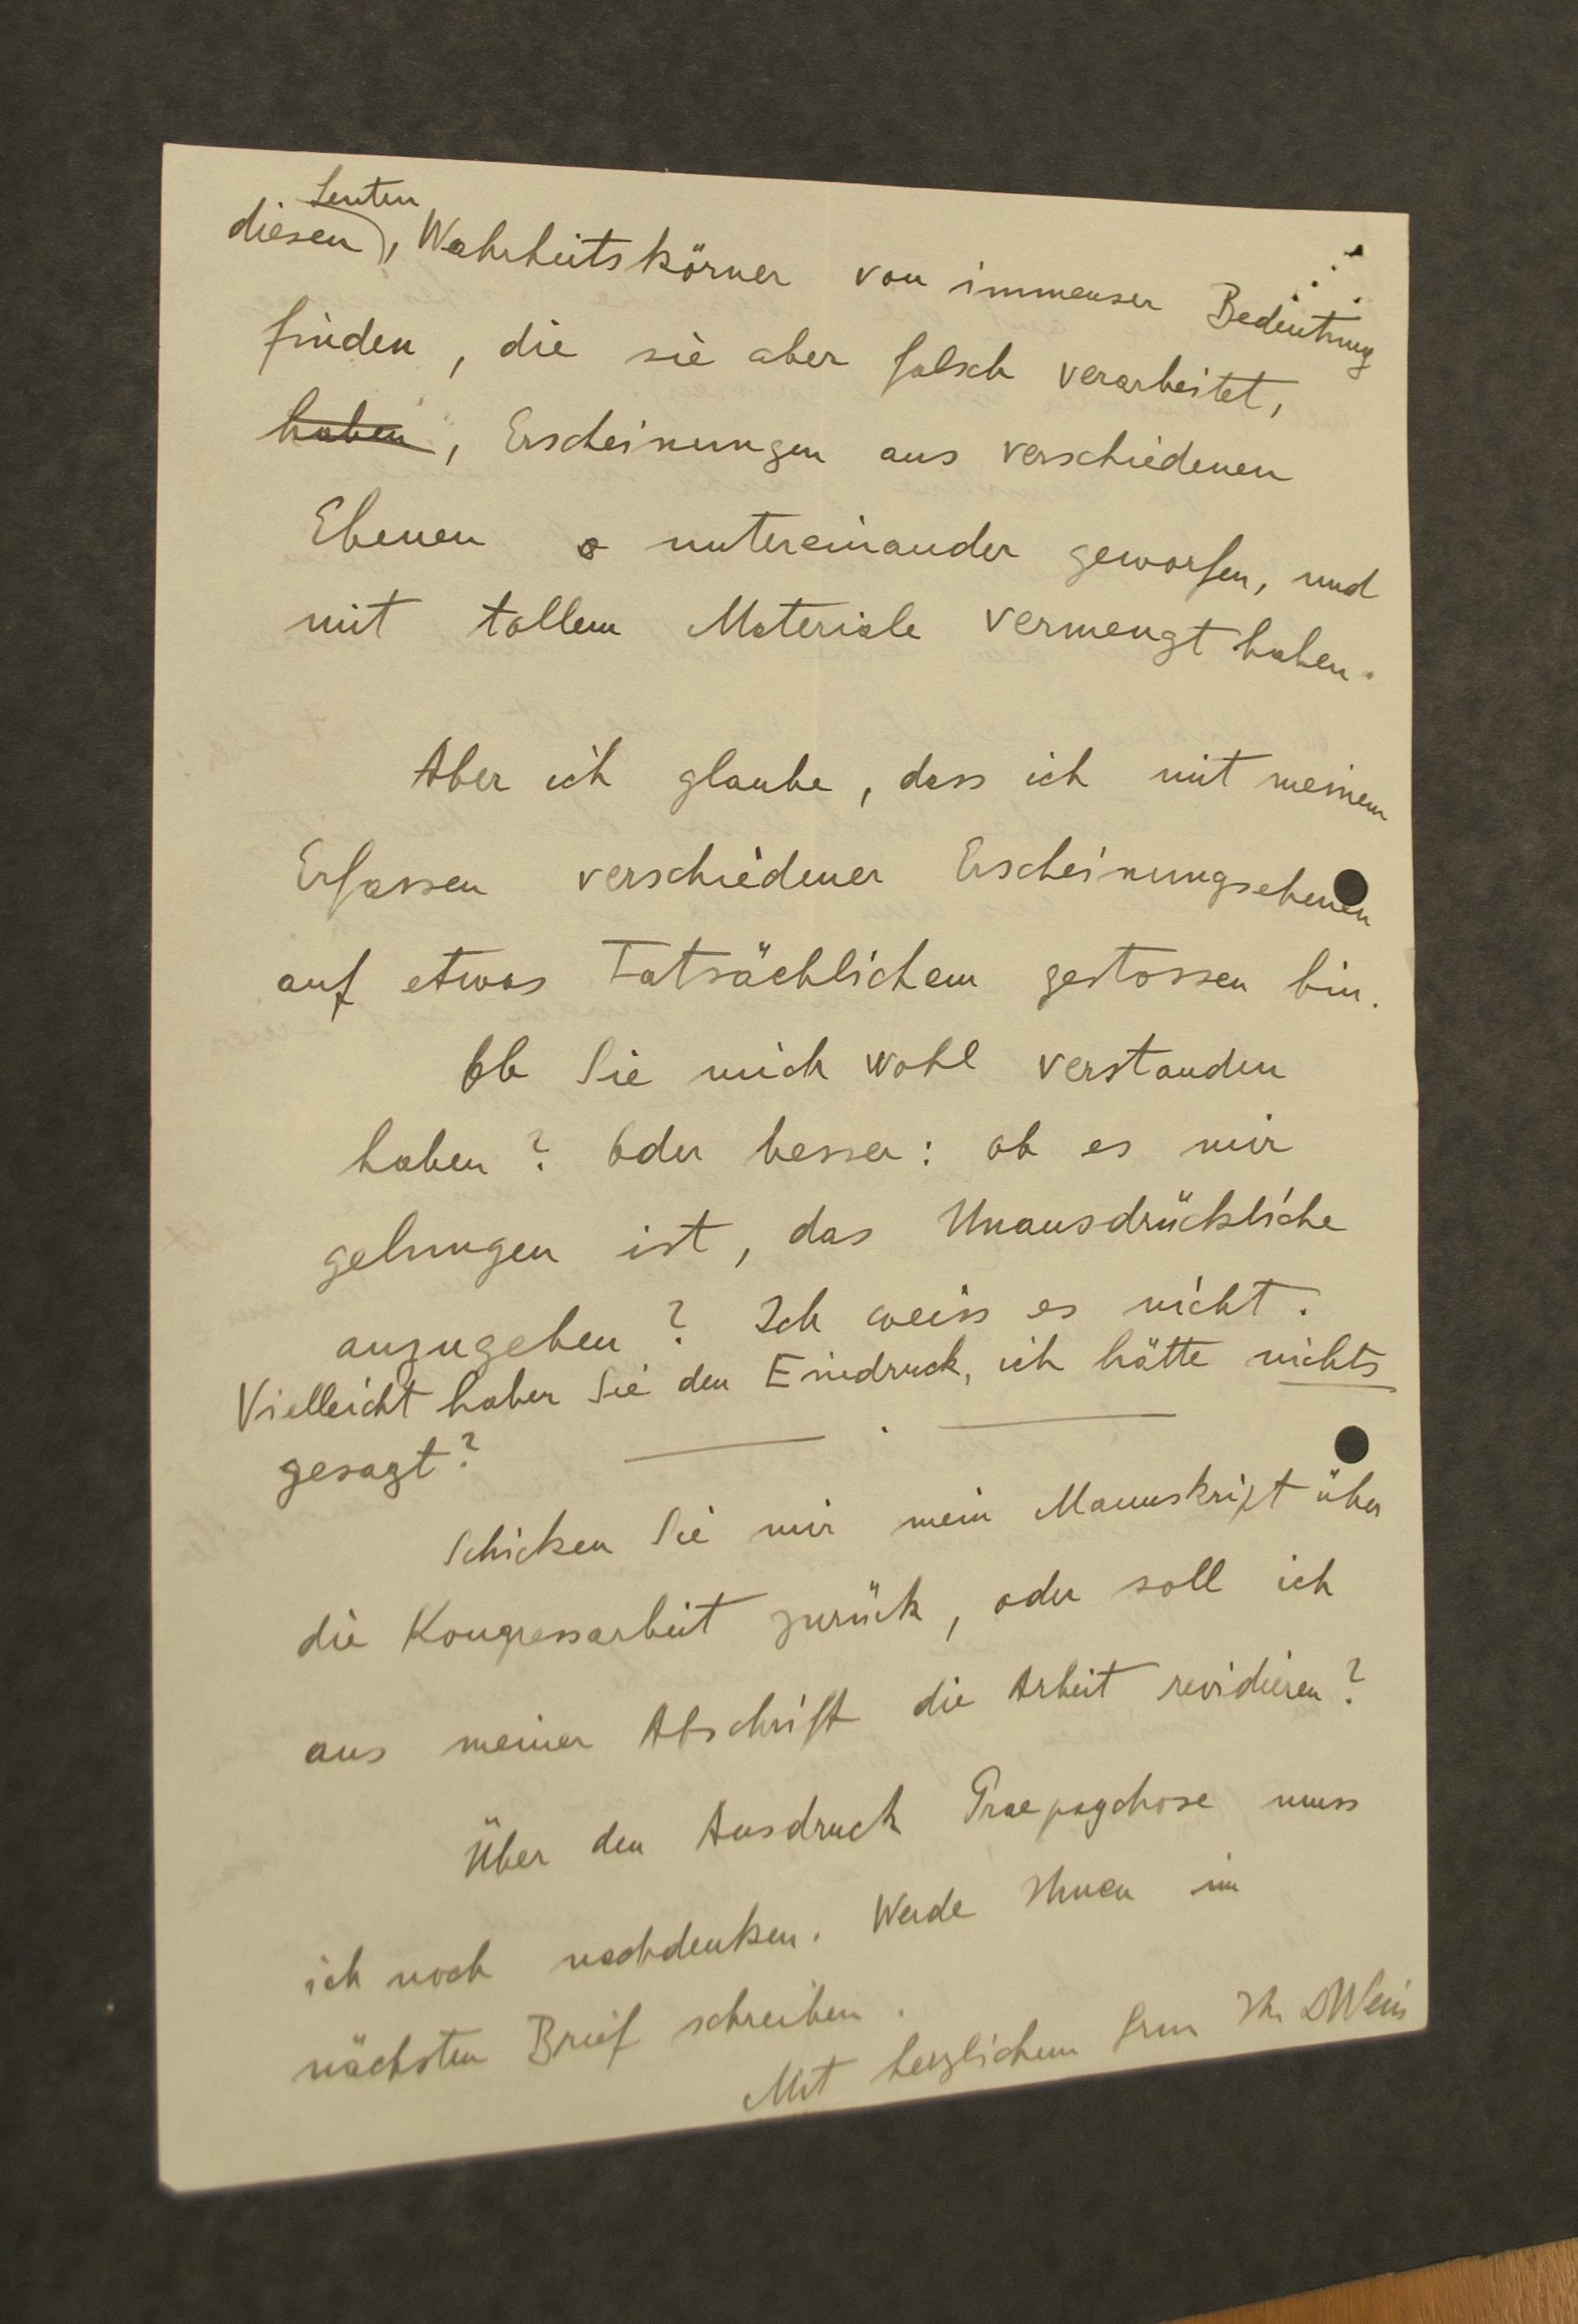 Leuten
diesen, Wahrheitskörner von immenser Bedeutung
finden, die sie aber falsch verarbeitet,
haben, Erscheinungen aus verschiedenen
Ebenen untereinander geworfen, und
mit tollem Materiale vermengt haben.
Aber ich glaube, dass ich mit meinem
Erfassen verschiedener Erscheinungsebenen
auf etwas Tatsächlichem gestossen bin.
Ob Sie mich wohl verstanden
haben? Oder besser: ob es mir
gelungen ist, das Unausdrückliche
anzugeben? Ich weiss es nicht.
Vielleicht haben Sie den Eindruck, ich hätte nichts
gesagt?
Schicken Sie mir mein Manuskript über
die Kongressarbeit zurück, oder soll ich
aus meiner Abschrift die Arbeit revidieren?
Über den Ausdruck Praepsychose muss
ich noch nachdenken. Werde Ihnen im
nächsten Brief schreiben.
Mit herzlichem Gruss Ihr DWeiss